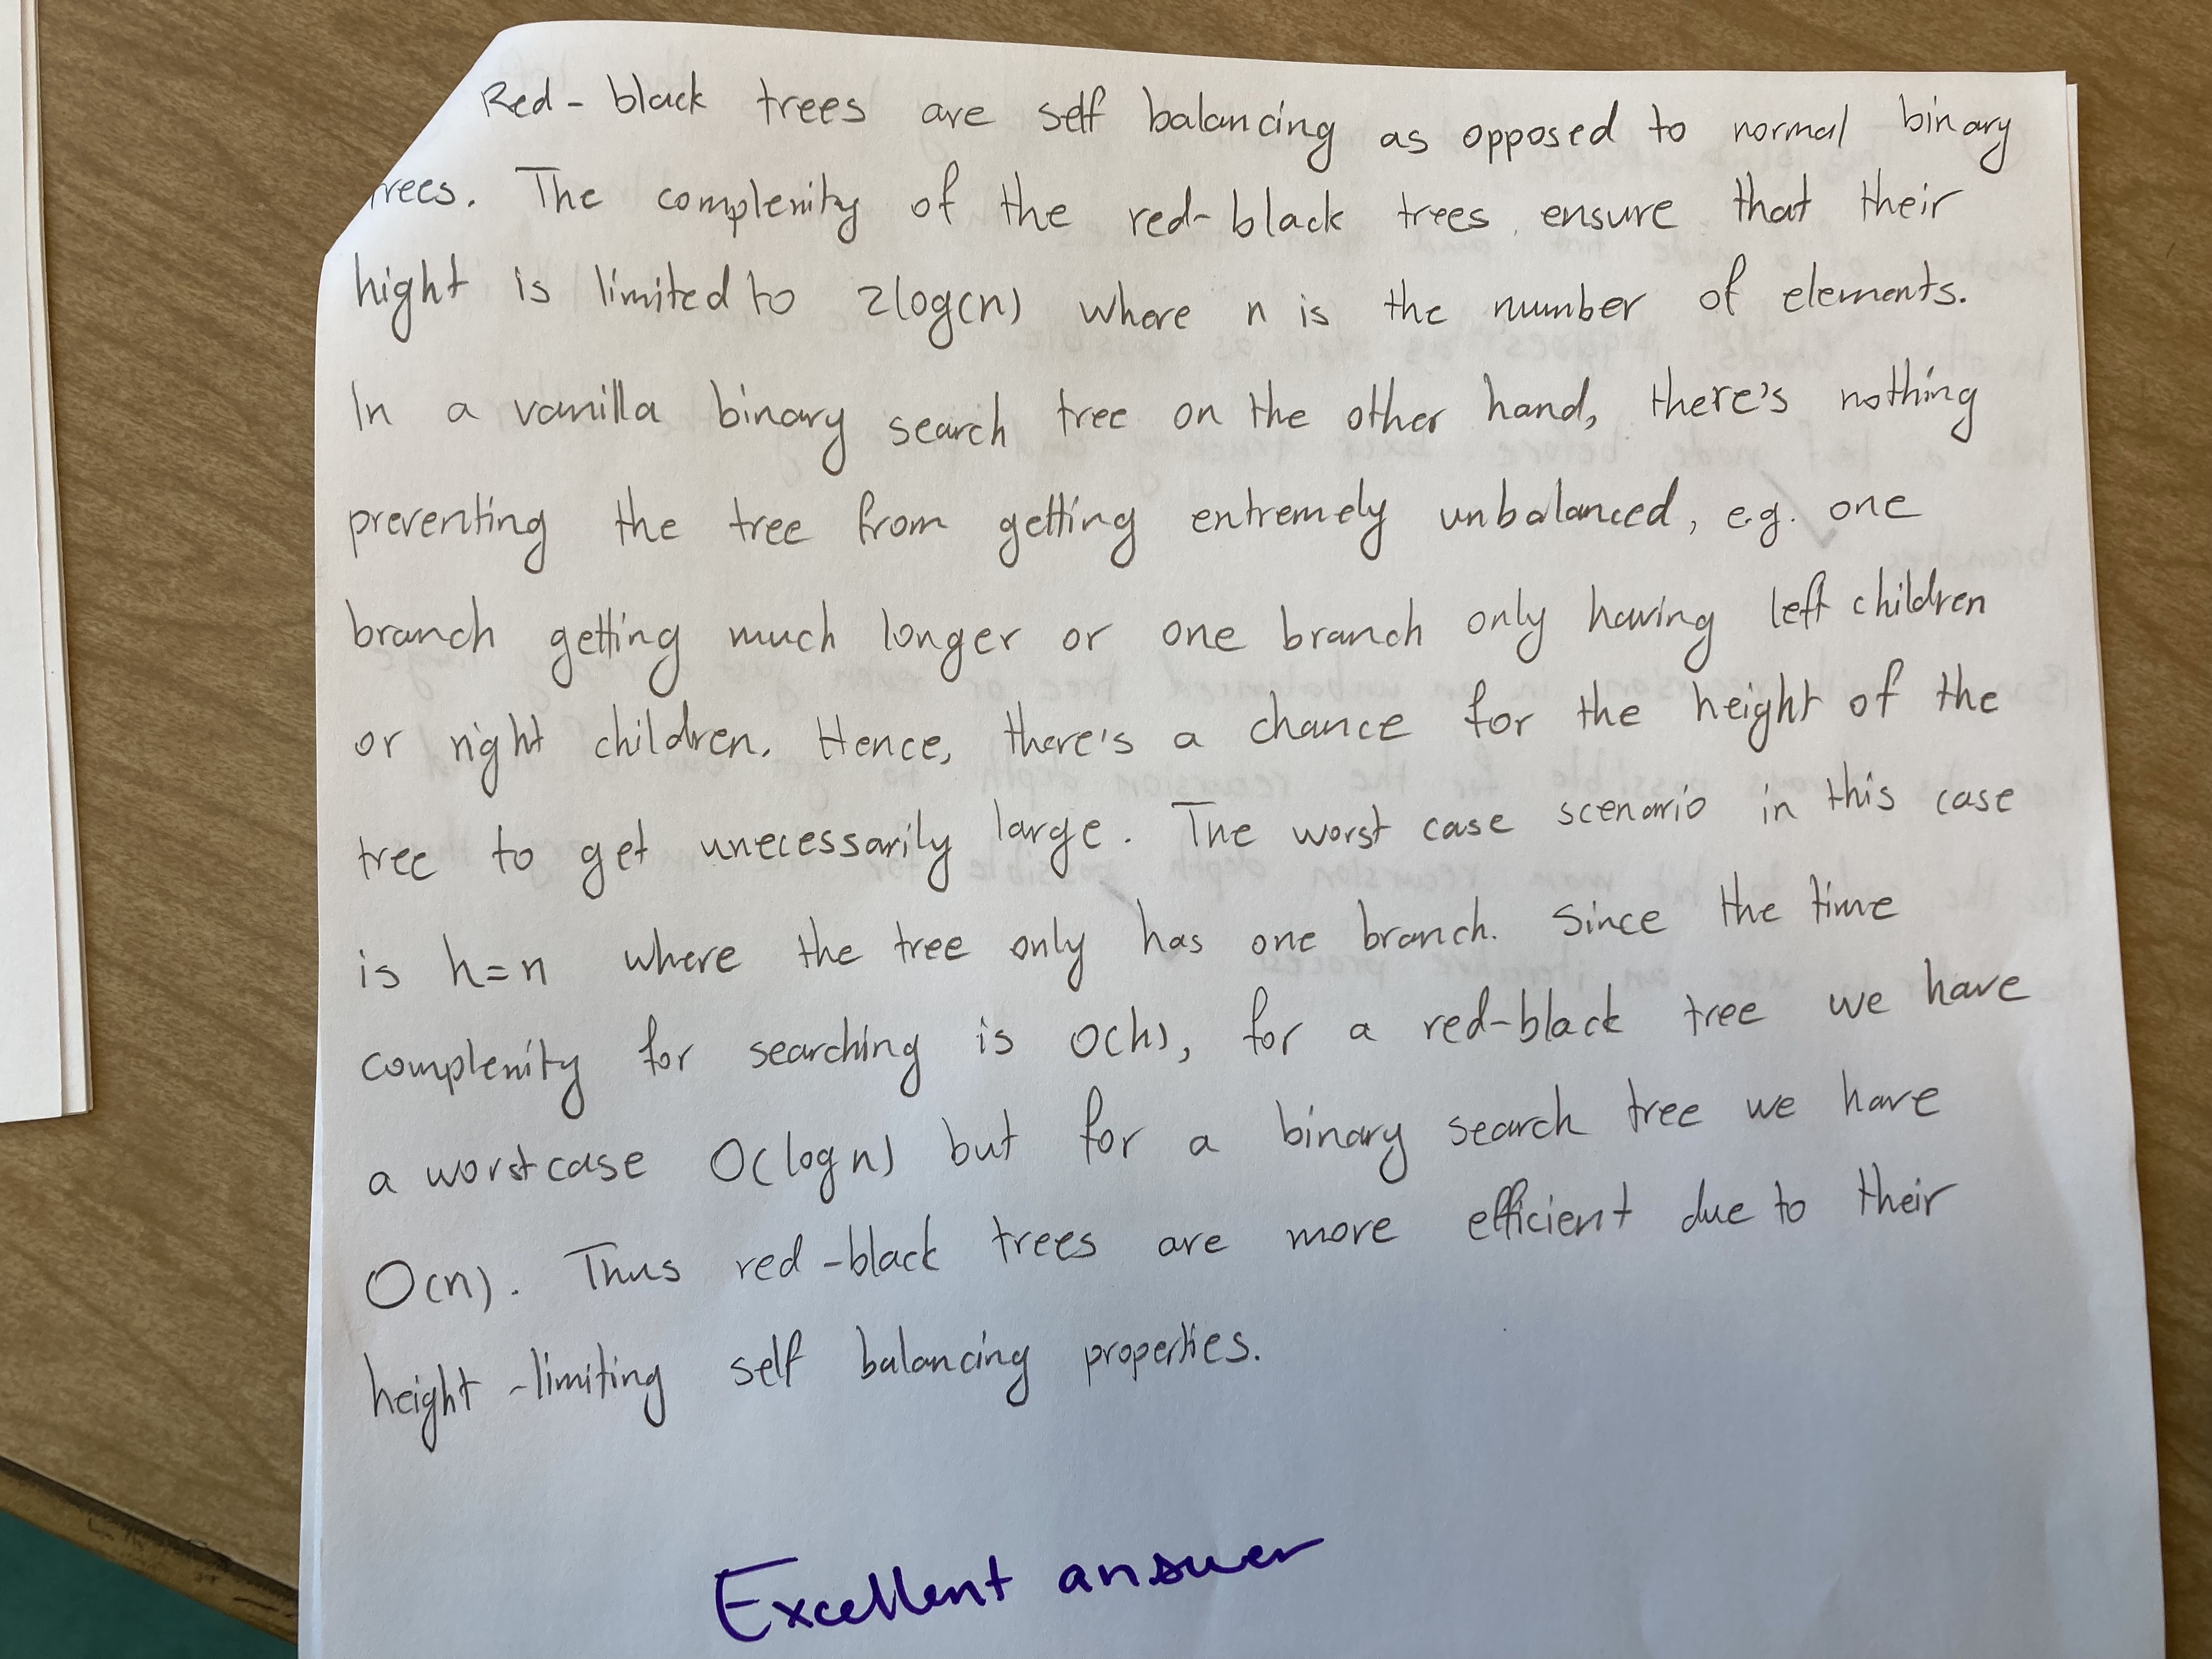 Red-black trees are self balancing as opposed to normal binary
trees. The complexity of the red-black trees ensure that their
hight is limited to 2log(n) where n is the number of elements.
In a vanilla binary search tree on the other hand, there's nothing
preventing the tree from getting extremely unbalanced, e.g. one
branch getting much longer or one branch only having left children
or right children. Hence, there's a chance for the height of the
tree to get unecessarily large. The worst case scenario in this case
is h=n where the tree only has one branch. Since the time
complexity for searching is O(h), for a red-black tree we have
a worst case O(log n) but for a binary search tree we have
O(n). Thus red-black trees are more efficient due to their
height-limiting self balancing properties.
Excellent answer